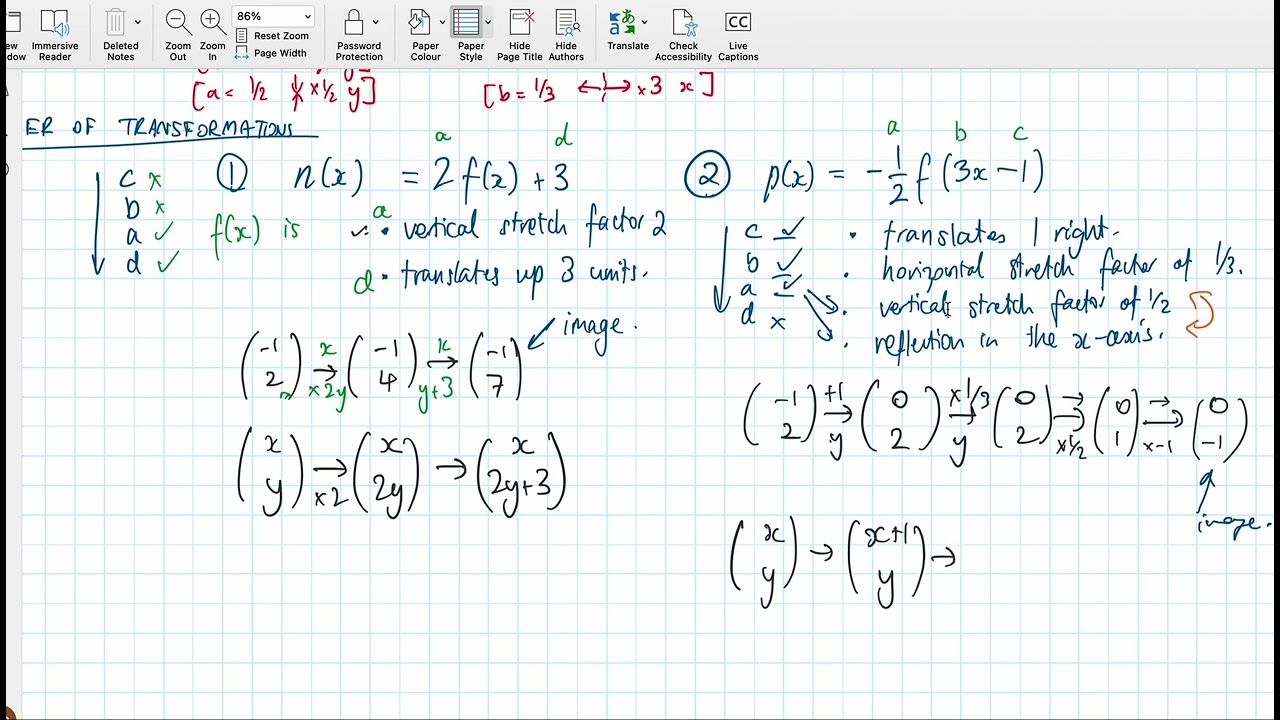 Immersive Reader
Deleted Notes
Zoom Out
Zoom In
86%
Reset Zoom
Page Width
Password Protection
Paper Colour
Paper Style
Hide Page Title
Hide Authors
Translate
Check Accessibility
CC
Live Captions
[a = 1/2 ×1/2 y]
[b = 1/3 ←→ ×3 x]
ER OF TRANSFORMATIONS
c ×
b ×
a ✓
d ✓
a d
① n(x) = 2f(x) + 3
f(x) is
a • vertical stretch factor 2
d • translates up 3 units.
(-1, 2) → x ×2y (-1, 4) → x y+3 (-1, 7) ← image.
(x, y) → ×2 (x, 2y) → (x, 2y+3)
a b c
② p(x) = -1/2 f(3x-1)
c ✓ • translates 1 right.
b ✓ • horizontal stretch factor of 1/3.
a ✓ • vertical stretch factor of 1/2
d × • reflection in the x-axis.
(-1, 2) +1 → y (0, 2) ×1/3 → y (0, 2) → ×1/2 (0, 1) → ×-1 (0, -1)
image.
(x, y) → (x+1, y) →